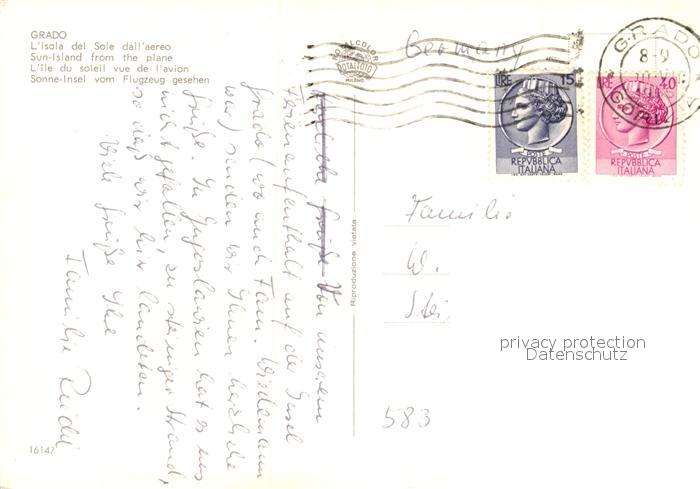 GRADO
L'isola del Sole dall'aereo
Sun-Island from the plane
L'île du soleil vue de l'avion
Sonne-Insel vom Flugzeug gesehen
Herzliche Grüße Von unserem
Ferienaufenthalt auf der Insel
Grado (wo auch Fam. Wiedemann
war) senden wir Ihnen herzliche
Grüße. In Jugoslawien hat es uns
nicht gefallen, zu steiniger Strand,
so daß wir hier landeten.
Viele Grüße Ihre
Familie
16147
Riproduzione vietata
Germany
GRADO
8-9
LIRE 15
POSTE
REPVBBLICA
ITALIANA
LIRE 40
POSTE
REPVBBLICA
ITALIANA
Familie
W.
Stei
privacy protection
Datenschutz
583